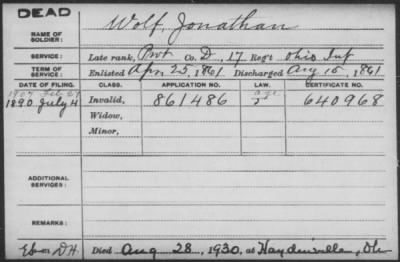 DEAD
NAME OF SOLDIER: Wolf, Jonathan
SERVICE: Late rank, Pvt Co. D, 17 Reg't Ohio Inf
TERM OF SERVICE: Enlisted Apr 25, 1861 Discharged Aug 15, 1861
DATE OF FILING. CLASS. APPLICATION NO. LAW. CERTIFICATE NO.
1907 Feb 27 age
1890 July 4 Invalid, 861486 640968
Widow,
Minor,
ADDITIONAL SERVICES:
REMARKS:
DH Died Aug 28, 1930, at Haydenville, Oh